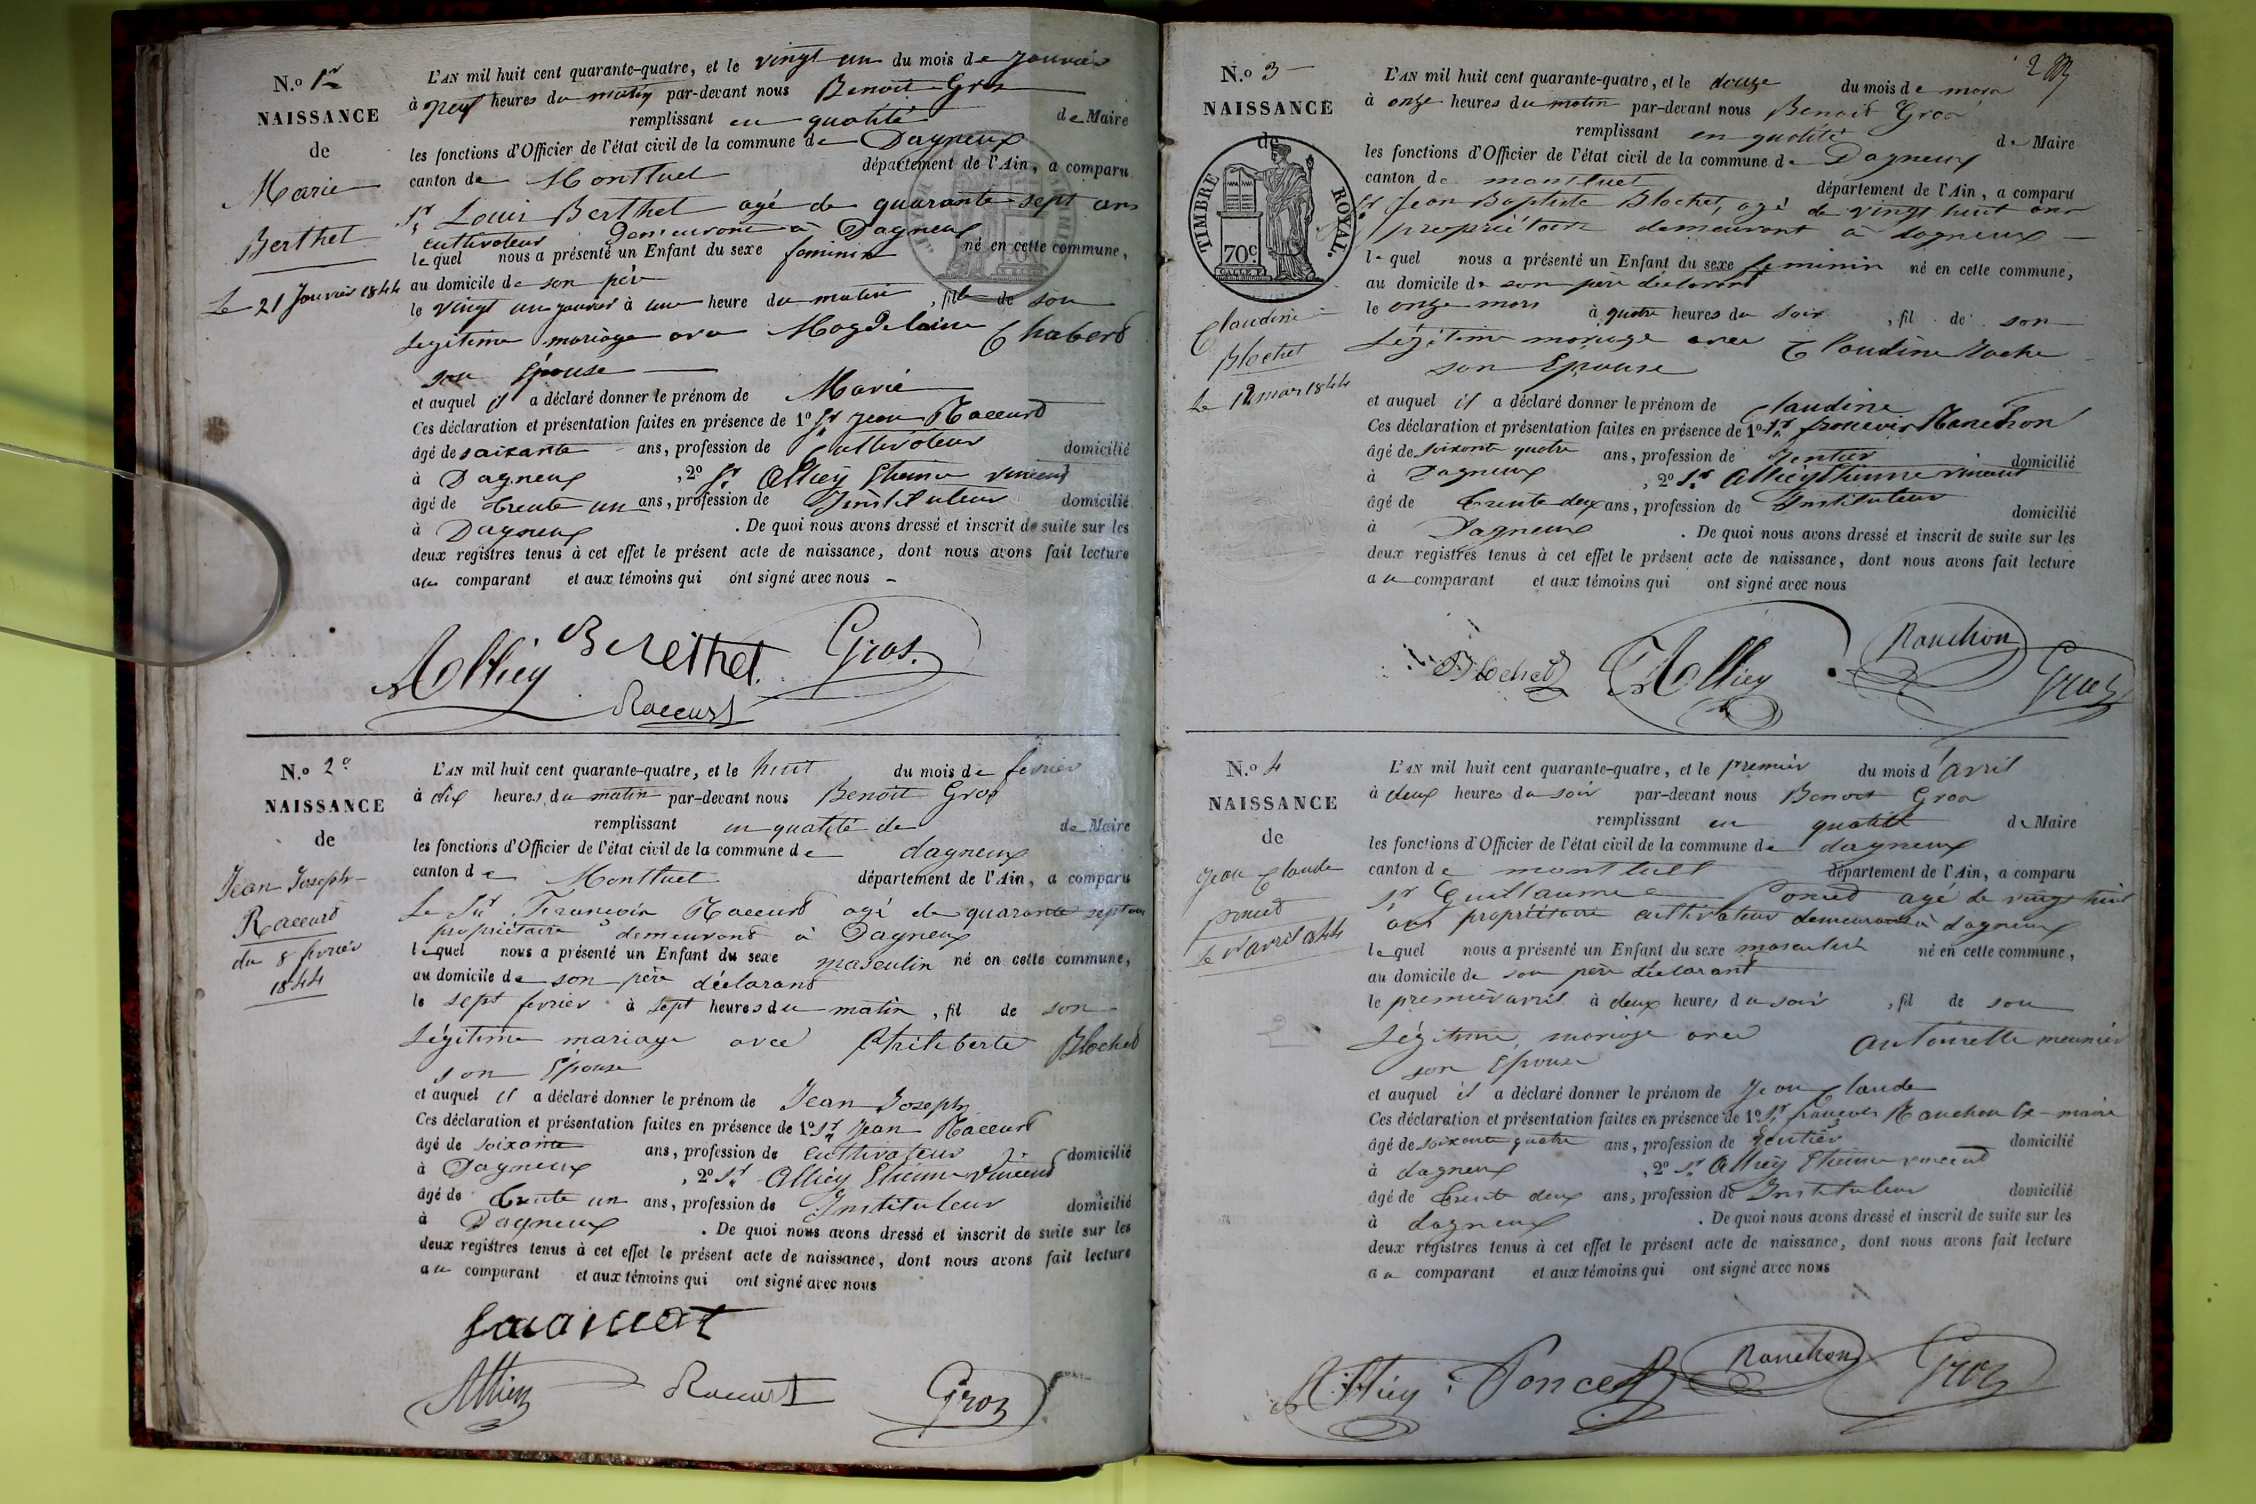 N.o 1er
NAISSANCE
de
Marie
Berthet
Le 21 Janvier 1844
L'AN mil huit cent quarante-quatre, et le vingt un du mois de Janvier
à neuf heures du matin par-devant nous Benoit Gros
remplissant en qualité de Maire
les fonctions d'Officier de l'état civil de la commune de Dagneux
canton de Montluel département de l'Ain, a comparu
Sr Louis Berthet agé de quarante sept ans
cultivateur demeurant à Dagneux
lequel nous a présenté un Enfant du sexe feminin né en cette commune,
au domicile de son père
le vingt un janvier à une heure du matin, fille de son
Legitime mariage avec Magdelaine Chabert
son Épouse
et auquel il a déclaré donner le prénom de Marie
Ces déclaration et présentation faites en présence de 1o Sr Jean Raccurt
âgé de soixante ans, profession de Cultivateur domicilié
à Dagneux, 2o Sr Alliey Etienne vincent
âgé de trente un ans, profession de Instituteur domicilié
à Dagneux. De quoi nous avons dressé et inscrit de suite sur les
deux registres tenus à cet effet le présent acte de naissance, dont nous avons fait lecture
au comparant et aux témoins qui ont signé avec nous
Alliey Berethet Gros.
Raccurt
N.o 2e
NAISSANCE
de
Jean Joseph
Raccurt
du 8 fevrier
1844
L'AN mil huit cent quarante-quatre, et le huit du mois de fevrier
à dix heures du matin par-devant nous Benoit Gros
remplissant en qualité de de Maire
les fonctions d'Officier de l'état civil de la commune de dagneux
canton de Montluel département de l'Ain, a comparu
Le Sr Francois Raccurt agé de quarante sept ans
propriétaire demeurant à Dagneux
lequel nous a présenté un Enfant du sexe masculin né en cette commune,
au domicile de son père déclarant
le sept fevrier à sept heures du matin, fil de son
Légitime mariage avec Philiberte Blochet
son Épouse
et auquel il a déclaré donner le prénom de Jean Joseph
Ces déclaration et présentation faites en présence de 1o Sr Jean Raccurt
âgé de soixante ans, profession de cultivateur domicilié
à Dagneux, 2o Sr Alliey Etienne Vincent
âgé de trente un ans, profession de Instituteur domicilié
à Dagneux. De quoi nous avons dressé et inscrit de suite sur les
deux registres tenus à cet effet le présent acte de naissance, dont nous avons fait lecture
au comparant et aux témoins qui ont signé avec nous
Alliey Raccurt Gros
N.o 3
NAISSANCE
de
TIMBRE ROYAL.
70c
Claudine
Blochet
Le 12 mars 1844
L'AN mil huit cent quarante-quatre, et le douze du mois de mars
à onze heures du matin par-devant nous Benoit Gros
remplissant en qualité de Maire
les fonctions d'Officier de l'état civil de la commune de Dagneux
canton de montluel département de l'Ain, a comparu
Sr Jean Baptiste Blochet, agé de vingt huit ans
propriétaire demeurant à dagneux
lequel nous a présenté un Enfant du sexe feminin né en cette commune,
au domicile de son père déclarant
le onze mars à quatre heures du soir, fil de son
Légitime mariage avec Claudine Roche
son Epouse
et auquel il a déclaré donner le prénom de Claudine
Ces déclaration et présentation faites en présence de 1o Sr francois Ranchon
âgé de soixante quatre ans, profession de Rentier domicilié
à Dagneux, 2o Sr Alliey Etienne vincent
âgé de trente deux ans, profession de Instituteur domicilié
à Dagneux. De quoi nous avons dressé et inscrit de suite sur les
deux registres tenus à cet effet le présent acte de naissance, dont nous avons fait lecture
au comparant et aux témoins qui ont signé avec nous
Blochet Alliey Ranchon Gros
N.o 4
NAISSANCE
de
Jean Claude
poncet
Le 1er avril 1844
L'AN mil huit cent quarante-quatre, et le premier du mois d'avril
à deux heures du soir par-devant nous Benoit Gros
remplissant en qualité de Maire
les fonctions d'Officier de l'état civil de la commune de dagneux
canton de montluel département de l'Ain, a comparu
Sr Guillaume Poncet agé de vingt huit
ans propriétaire cultivateur demeurant à dagneux
lequel nous a présenté un Enfant du sexe masculin né en cette commune,
au domicile de son père déclarant
le premier avril à deux heures du soir, fil de son
Légitime mariage avec antoinette meunier
son Epouse
et auquel il a déclaré donner le prénom de Jean Claude
Ces déclaration et présentation faites en présence de 1o Sr francois Ranchon Ex-maire
âgé de soixante quatre ans, profession de Rentier domicilié
à dagneux, 2o Sr Alliey Etienne vincent
âgé de trente deux ans, profession de Instituteur domicilié
à dagneux. De quoi nous avons dressé et inscrit de suite sur les
deux registres tenus à cet effet le présent acte de naissance, dont nous avons fait lecture
au comparant et aux témoins qui ont signé avec nous
Alliey Poncet Ranchon Gros